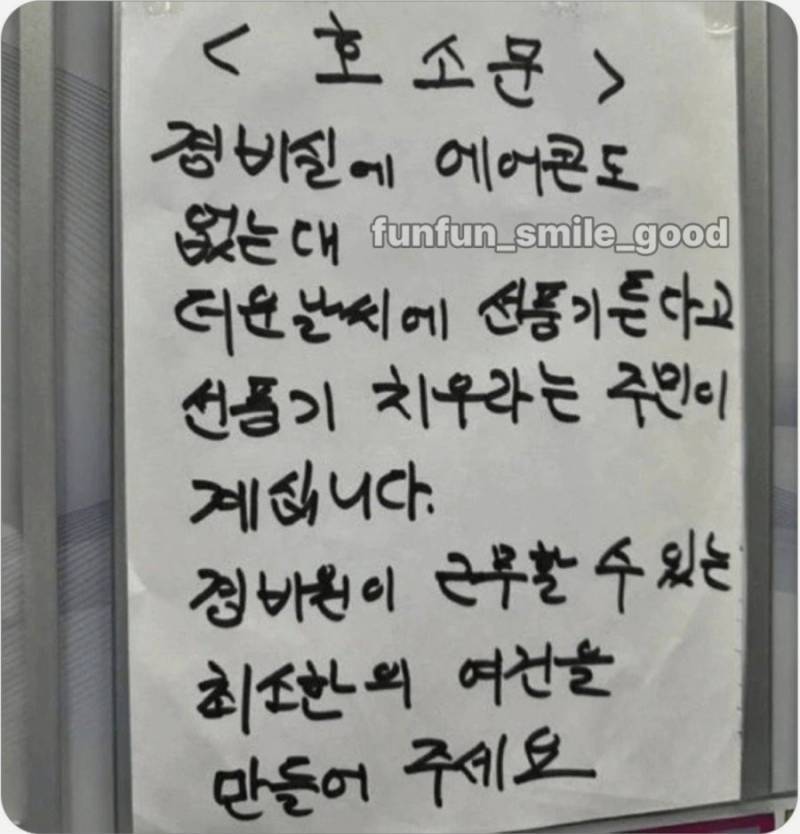 < 호 소 문 >
경비실에 에어콘도
없는대
funfun_smile_good
더운날씨에 선풍기튼다고
선풍기 치우라는 주민이
계십니다.
경비원이 근무할 수 있는
최소한의 여건을
만들어 주세요